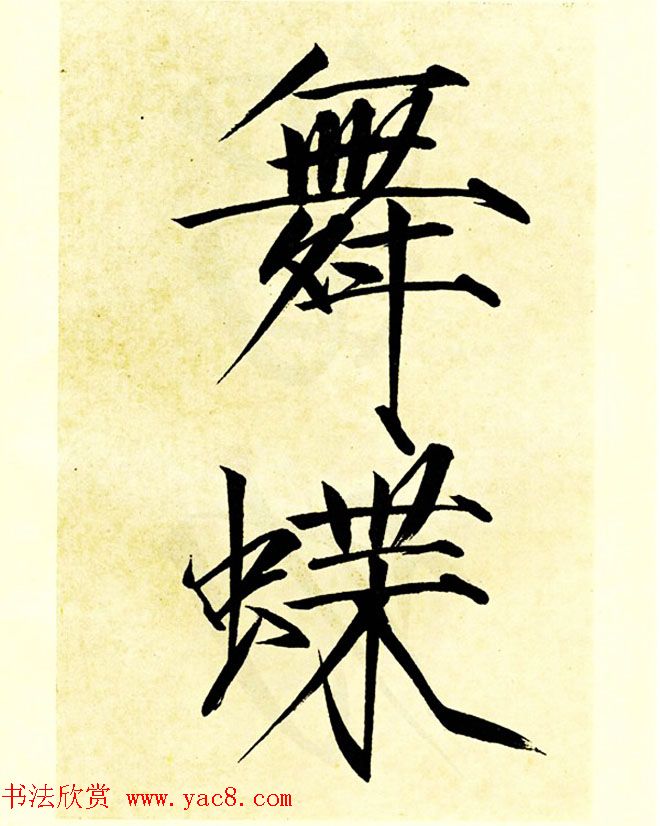 舞
蝶
书法欣赏 www.yac8.com